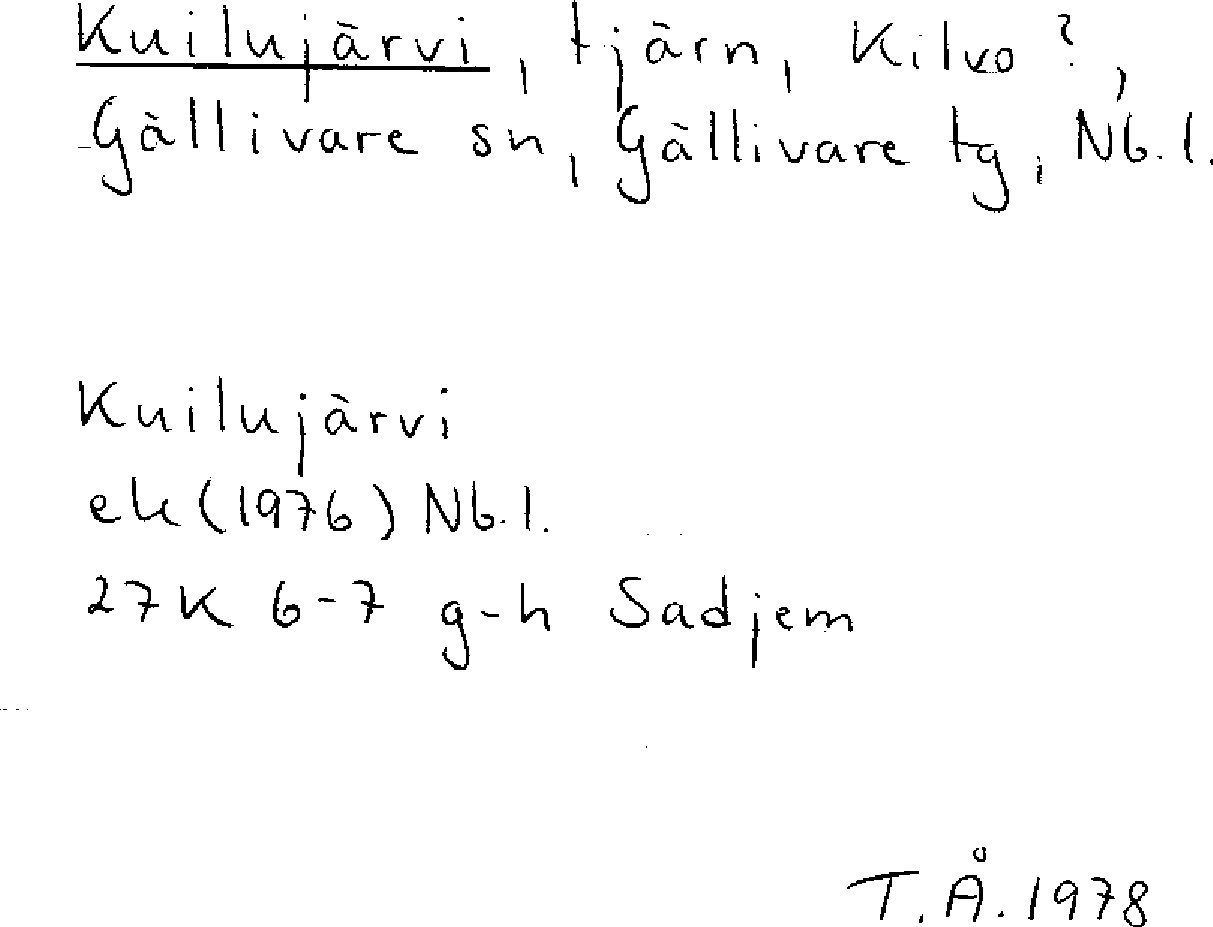 Kuilujärvi, tjärn, Kilvo?,
Gällivare sn, Gällivare tg, Nb.l.
Kuilujärvi
ek (1976) Nb.l.
27K 6-7 g-h Sadjem
T.Å. 1978